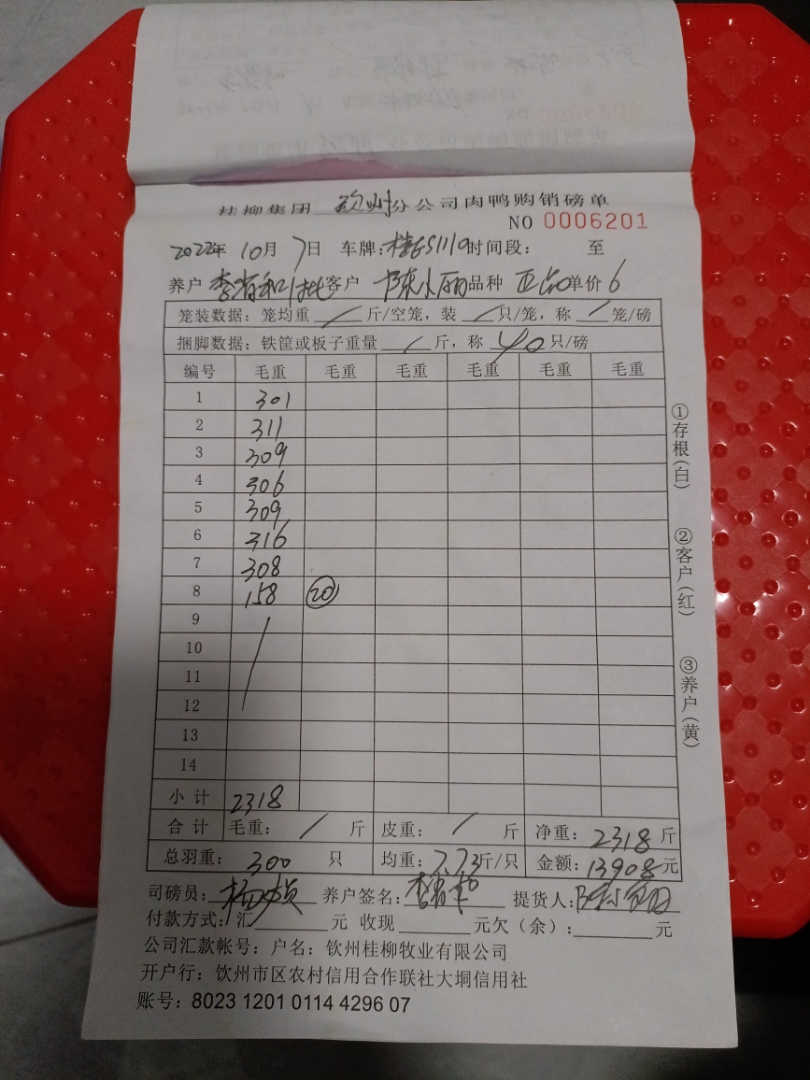 桂柳集团 钦州 分公司肉鸭购销磅单
NO 0006201
2022年 10月 7日 车牌: 时间段: 至
养户 李 和 批 客户 陈小丽 品种 正品 单价 6
笼装数据: 笼均重 / 斤/空笼, 装 / 只/笼, 称 / 笼/磅
捆脚数据: 铁筐或板子重量 / 斤, 称 40 只/磅
编号 毛重 毛重 毛重 毛重 毛重 毛重
1 301
2 311
3 309
4 306
5 309
6 316
7 308
8 158 20
9
10
11
12
13
14
小计 2318
合计 毛重: / 斤 皮重: / 斤 净重: 2318 斤
总羽重: 300 只 均重: 7.73 斤/只 金额: 13908 元
司磅员: 养户签名: 提货人:
付款方式: 汇 元 收现 元欠(余): 元
公司汇款帐号: 户名: 钦州桂柳牧业有限公司
开户行: 钦州市区农村信用合作联社大垌信用社
账号: 8023 1201 0114 4296 07
①存根(白)
②客户(红)
③养户(黄)